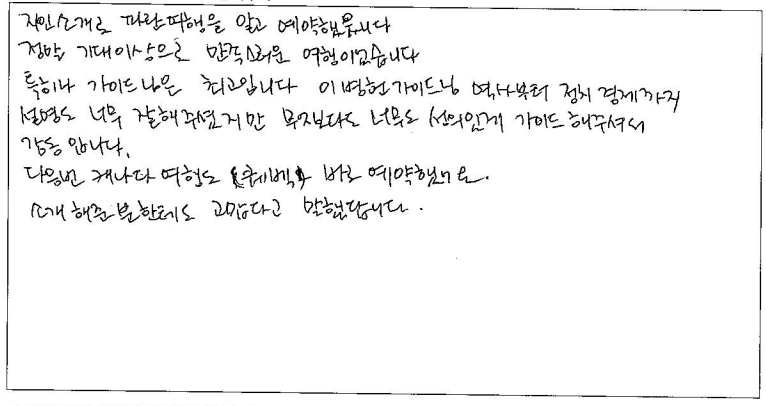 지인소개로 파란여행을 알고 예약했읍니다
정말 기대이상으로 만족스러운 여행이었습니다
특히나 가이드님은 최고입니다 이병헌가이드님 역사부터 정치 경제까지
설명도 너무 잘해주셨지만 무엇보다도 너무도 선의있게 가이드해주셔서
감동 입니다.
다음번 캐나다 여행도 (퀘벡) 바로 예약했구요.
소개해준 분한테도 고맙다고 말했답니다.